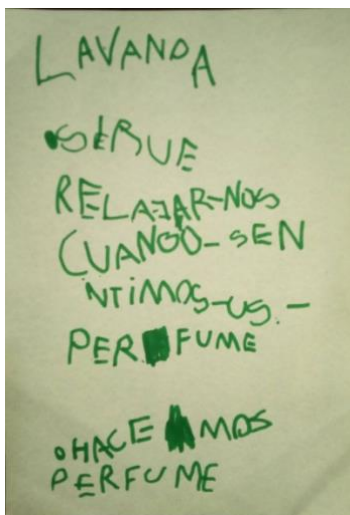 LAVANDA
SERVE
RELAJAR-NOS
CUANDO-SEN
NTIMOS-US.-
PERFUME
HACEMOS
PERFUME